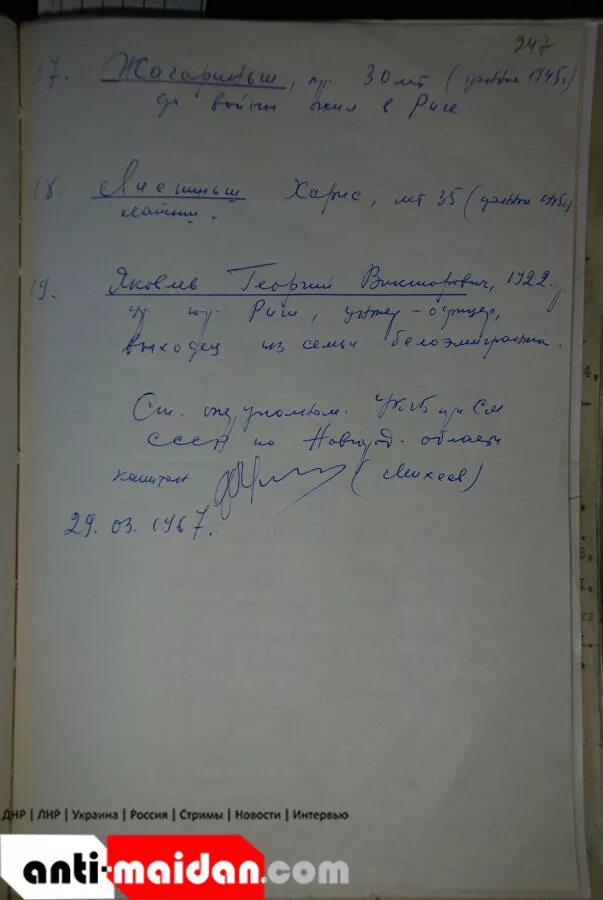 247
17. Жагариньш, пр. 30 лет (данные 1945г.)
до войны жил в Риге
18. Лиепиньш Харис, лет 35 (данные 1945г.)
латыш.
19. Яковлев Георгий Викторович, 1922 г.р.
ур. гор. Риги, унтер-офицер,
выходец из семьи белоэмигранта.
Ст. оперуполном. УКГБ при СМ
СССР по Новгород. области
капитан (Михеев)
29. 03. 1967.
ДНР | ЛНР | Украина | Россия | Стримы | Новости | Интервью
anti-maidan.com